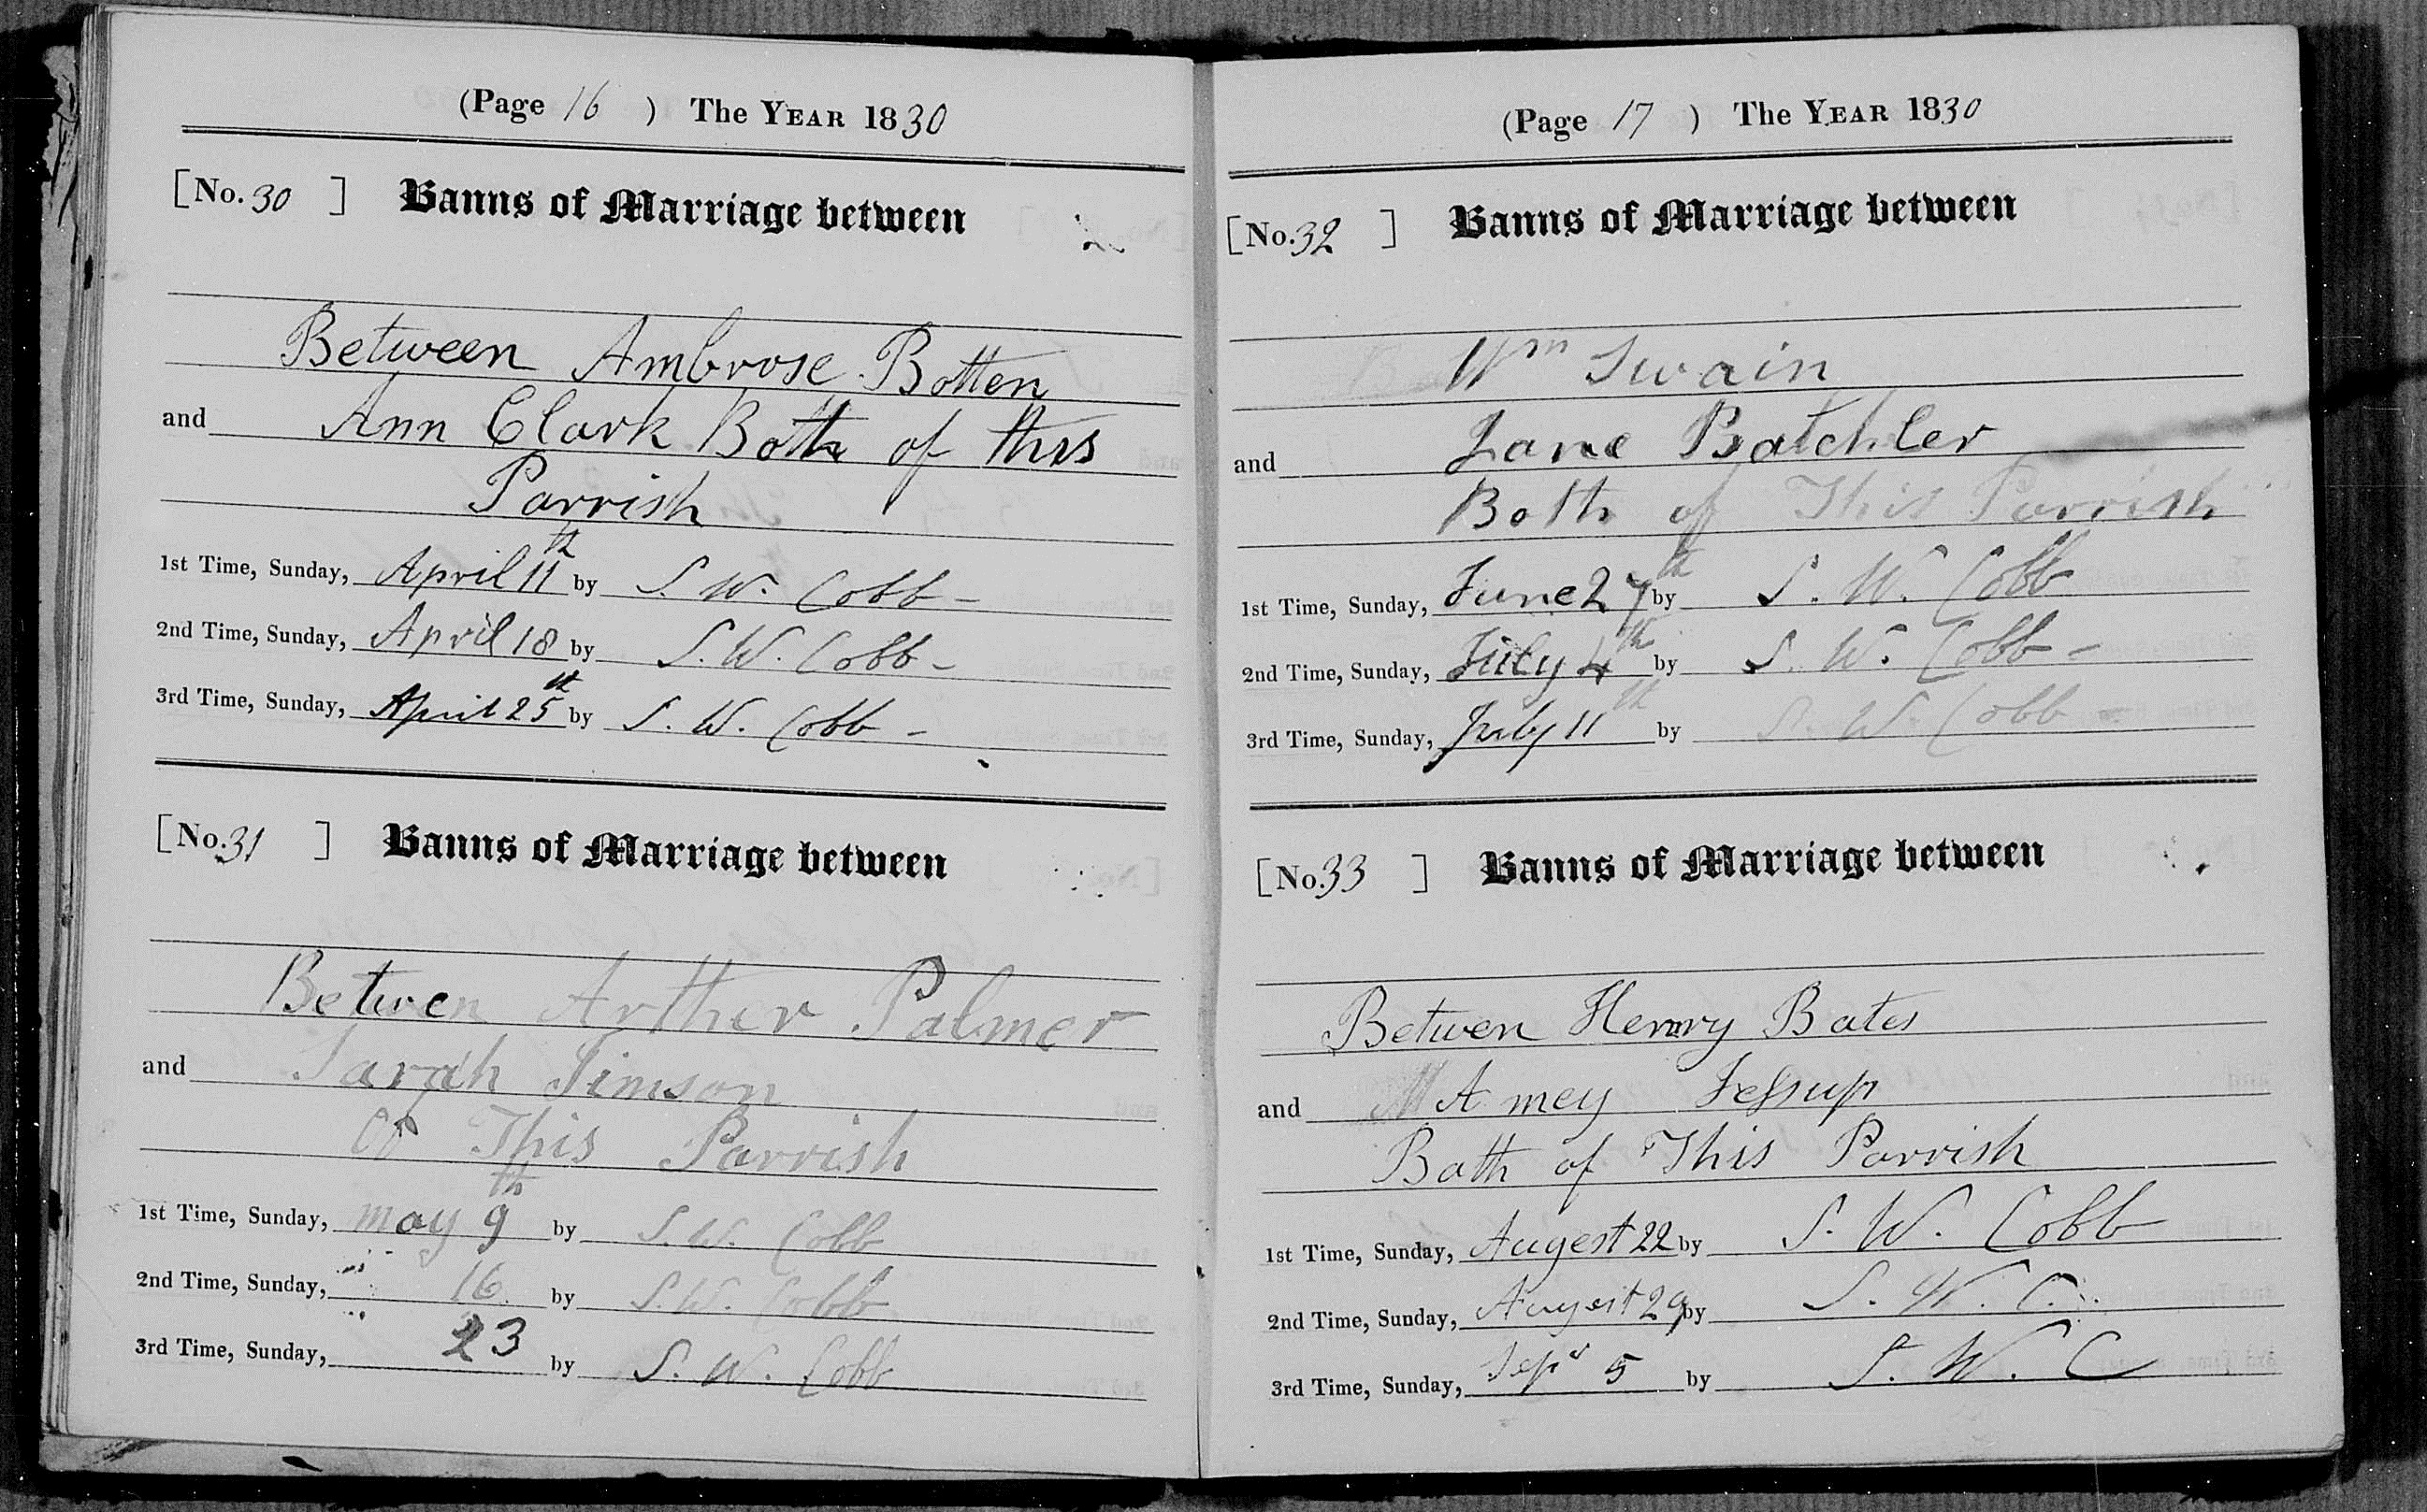 (Page 16 ) The YEAR 1830
[No. 30 ] Banns of Marriage between
Between Ambrose Botten
and Ann Clark Both of this
Parrish
1st Time, Sunday, April 11th by S. W. Cobb –
2nd Time, Sunday, April 18 by S. W. Cobb –
3rd Time, Sunday, April 25th by S. W. Cobb –
[No. 31 ] Banns of Marriage between
Betwen Arther Palmer
and Sarah Simson
Of This Parrish
1st Time, Sunday, may 9th by S. W. Cobb
2nd Time, Sunday, 16 by S. W. Cobb
3rd Time, Sunday, 23 by S. W. Cobb
(Page 17 ) The YEAR 1830
[No. 32 ] Banns of Marriage between
Wm Swain
and Jane Batchler
Both of This Parrish
1st Time, Sunday, June 27th by S. W. Cobb
2nd Time, Sunday, July 4th by S. W. Cobb –
3rd Time, Sunday, July 11th by S. W. Cobb –
[No. 33 ] Banns of Marriage between
Betwen Henry Bates
and Amey Jessup
Both of This Parrish
1st Time, Sunday, Augest 22 by S. W. Cobb
2nd Time, Sunday, Augest 29 by S. W. C.
3rd Time, Sunday, Sepr 5 by S. W. C